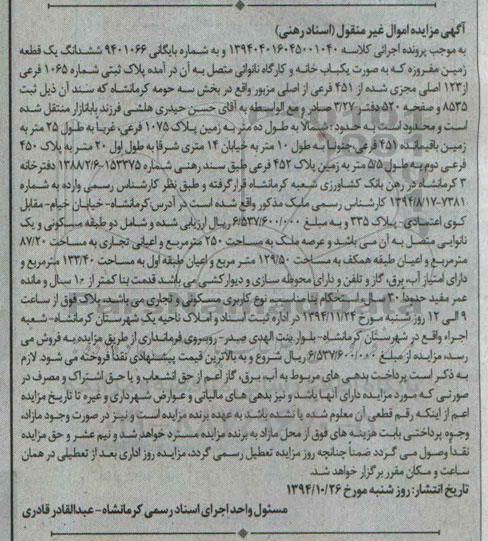 آگهی مزایده اموال غیر منقول (اسناد رهنی)
به موجب پرونده اجرائی کلاسه ۱۳۹۴۰۴۰۱۶۰۴۵۰۰۱۰۴۰ و به شماره بایگانی ۹۴۰۱۰۶۶ ششدانگ یک قطعه
زمین مفروزه که به صورت یکباب خانه و کارگاه نانوائی متصل به آن در آمده پلاک ثبتی شماره ۱۰۶۵ فرعی
از ۱۲۳ اصلی مجزی شده از ۴۵۱ فرعی از اصلی مزبور واقع در بخش سه حومه کرمانشاه که سند آن ذیل ثبت
۸۵۳۵ و صفحه ۵۲۰ دفتر ۳/۲۷ صادر و مع الواسطه به آقای حسن حیدری هلشی فرزند باباتازار منتقل شده
است و محدود است به حدود: شمالا به طول ده متر به زمین پلاک ۱۰۷۵ فرعی، غربا به طول ۲۵ متر به
زمین باقیمانده ۴۵۱ فرعی جنوبا به طول ۱۰ متر به خیابان ۱۴ متری شرقا به طول اول ۲۰ متر به پلاک ۴۵۰
فرعی دوم به طول ۵/۵ متر به زمین پلاک ۴۵۲ فرعی طبق سند رهنی شماره ۱۵۳۳۷۵-۱۳۸۸/۲/۶ دفترخانه
۳ کرمانشاه در رهن بانک کشاورزی شعبه کرمانشاه قرار گرفته و طبق نظر کارشناس رسمی وارده به شماره
۷۳۸۱-۱۳۹۴/۸/۱۷ کارشناس رسمی ملک مذکور واقع شده است در آدرس: کرمانشاه- خیابان خیام- مقابل
کوی اعتمادی- پلاک ۳۳۵ و به مبلغ ۶/۵۳۷/۶۰۰/۰۰۰ ریال ارزیابی شده و شامل دو طبقه مسکونی و یک
نانوایی متصل به آن می باشد و عرصه ملک به مساحت ۲۵۰ مترمربع و اعیانی تجاری به مساحت ۸۷/۲۰
مترمربع و اعیان طبقه همکف به مساحت ۱۲۹/۵۰ متر مربع و اعیان طبقه اول به مساحت ۱۳۳/۴۰ مترمربع و
دارای امتیاز آب، برق، گاز و تلفن و دارای محوطه سازی و دیوارکشی می باشد قدمت بنا کمتر از ۱۰ سال و مانده
عمر مفید حدودا ۳۰ سال، استحکام بنا مناسب، نوع کاربری مسکونی و تجاری می باشد، پلاک فوق از ساعت
۹ الی ۱۲ روز شنبه مورخ ۱۳۹۴/۱۱/۲۴ در اداره ثبت اسناد و املاک ناحیه یک شهرستان کرمانشاه- شعبه
اجراء واقع در شهرستان کرمانشاه- بلوار بنت الهدی صدر- روبروی فرمانداری از طریق مزایده به فروش می
رسد، مزایده از مبلغ ۶/۵۳۷/۶۰۰/۰۰۰ ریال شروع و به بالاترین قیمت پیشنهادی نقدا فروخته می شود. لازم
به ذکر است پرداخت بدهی های مربوط به آب، برق، گاز اعم از حق انشعاب و یا حق اشتراک و مصرف در
صورتی که مورد مزایده دارای آنها باشد و نیز بدهی های مالیاتی و عوارض شهرداری و غیره تا تاریخ مزایده
اعم از اینکه رقم قطعی آن معلوم شده یا نشده باشد به عهده برنده مزایده است و نیز در صورت وجود مازاد،
وجوه پرداختی بابت هزینه های فوق از محل مازاد به برنده مزایده مسترد خواهد شد و نیم عشر و حق مزایده
نقدا وصول می گردد ضمنا چنانچه روز مزایده تعطیل رسمی گردد، مزایده روز اداری بعد از تعطیلی در همان
ساعت و مکان مقرر برگزار خواهد شد.
تاریخ انتشار: روز شنبه مورخ ۱۳۹۴/۱۰/۲۶
مسئول واحد اجرای اسناد رسمی کرمانشاه- عبدالقادر قادری